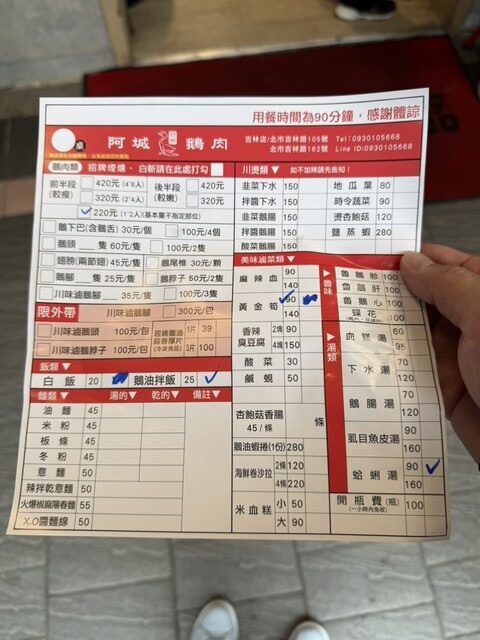 用餐時間為90分鐘，感謝體諒
桌
阿城鵝肉
吉林店/北市吉林路105號 Tel：0930105668
北市吉林路162號 Line ID:0930105668
鵝肉類 招牌煙燻、白斬請在此處打勾
前半段(較瘦) 420元(4~6人) 320元(2~4人) 後半段(較嫩) 420元 320元
220元(1~2人)(基本量不指定部位)
鵝下巴(含鵝舌) 30元/個 100元/4個
鵝頭 隻 60元/隻 100元/2隻
翅膀(兩節翅) 45元/隻 鵝尾椎 30元/顆
鵝腳 隻 25元/隻 鵝脖子 50元/2隻
川味滷鵝腳 35元/隻 100元/3隻
限外帶 川味滷鵝腳 300元/包
川味滷鵝頭 100元/包 1片 39
川味滷鵝脖子 100元/包 3片 100
飯類▼
白飯 20 鵝油拌飯 25
麵類▼ 湯的▼ 乾的▼ 備註▼
油麵 45
米粉 45
板條 45
冬粉 45
意麵 50
辣拌乾意麵 50
火爆椒麻陽春麵 55
X.O醬麵線 50
川燙類▼ 如不加辣請先告知！
韭菜下水 150 地瓜葉 80
拌醬下水 150 時令蔬菜 90
韭菜鵝腸 150 燙杏鮑菇 120
拌醬鵝腸 150 鹽蒸蝦 280
酸菜鵝腸 150
美味滷菜類▼
麻辣血 90 140
黃金筍 90 140
香辣臭豆腐 2塊 90 4塊 150
酸菜 30
鹹蜆 50
杏鮑菇香腸 45/條 條
鵝油蝦捲(1份) 280
海鮮卷沙拉 2條 120 4條 220
米血糕 小 50 大 90
▶魯味
魯鵝胗 100
魯鵝肝 100
魯鵝心 100
蝶花 100
▶湯類
血糕湯 60 95
下水湯 70 120
鵝腸湯 70 120
虱目魚皮湯 90 160
蛤蜊湯 90 160
開瓶費(瓶) (一小時內免收) 100